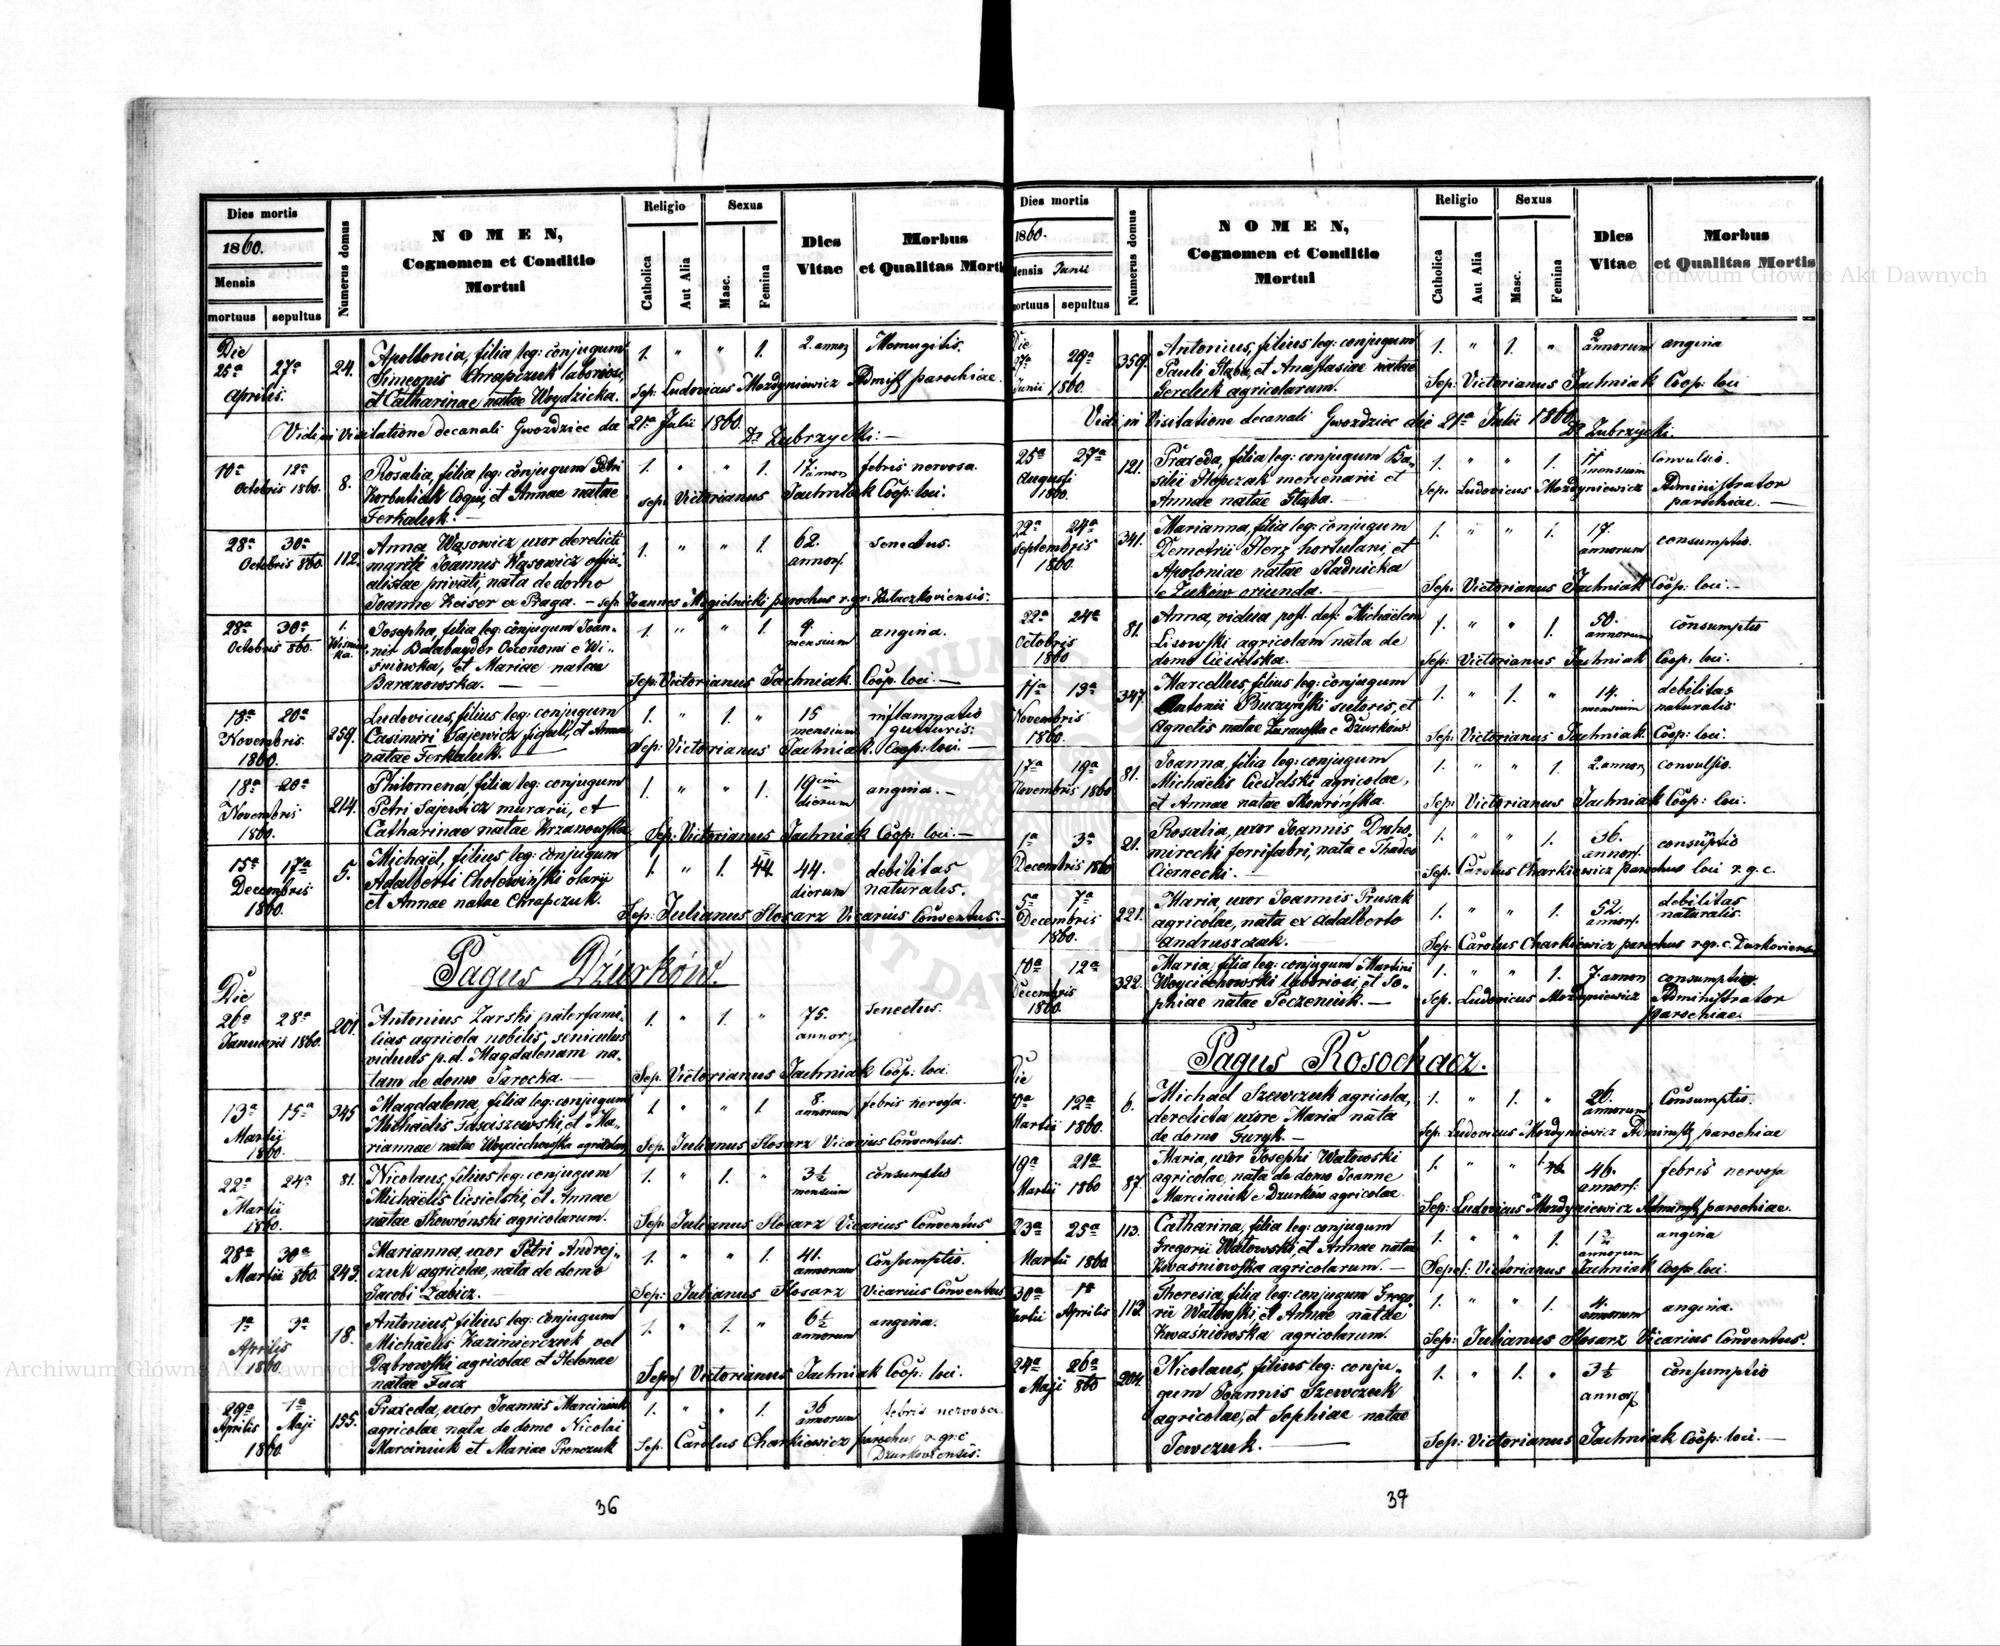 Dies mortis
1860.
Mensis
mortuus sepultus
Numerus domus
NOMEN,
Cognomen et Conditio
Mortui
Religio
Catholica
Aut Alia
Sexus
Masc.
Femina
Dies
Vitae
Morbus
et Qualitas Mortis
Die
25ª 27ª 24. Apollonia, filia leg: conjugum 1. " " 1. 2. annor
Aprilis. Simeonis Chrapczuk laboriosi,
et Catharinae natae Woydzicka. Sep: Ludovicus Mozdyniewicz Admss parochiae
Vidi in Visitatione decanali Gwozdziec die 21ª Julii 1860.
Dr Zubrzycki: —
10ª 12ª 8. Rosalia, filia leg: conjugum Petri 1. " " 1. 17 annor febris nervosa.
Octobris 1860. Korbutiak Coqui, et Annae natae
Ferkaluk. — sep: Victorianus Jachniak Coop: loci.
28ª 30ª 112. Anna Wąsowicz uxor derelicti 1. " " 1. 62. annor. senectus.
Octobris 860. mariti Joannis Wąsowicz offici-
alistae privati, nata de domo
Joanne Keiser ex Praga. — sep: Joannes Mogielnicki parochus r. gr:
28ª 30ª 1. Josepha, filia leg: conjugum Joan- 1. " " 1. 9. mensium angina.
Octobris 860. nis Balabayder Oeconomi e Wi-
śniowka, et Mariae natae
Baranowska. — Sep: Victorianus Jachniak Coop: loci. —
18ª 20ª 259. Ludovicus, filius leg: conjugum 1. " 1. " 15 mensium inflammatio gutturis.
Novembris Casimiri Sajewicz figuli, et Annae
1860. natae Ferkaluk. — Sep: Victorianus Jachniak Coop: loci. —
18ª 20ª 214. Philomena, filia leg: conjugum 1. " " 1. 19 dierum angina. —
Novembris Petri Sajewicz murarii, et
1860. Catharinae natae Krzanowska Sep: Victorianus Jachniak Coop: loci. —
15ª 17ª 5. Michaël, filius leg: conjugum 1. " 1. 44. dierum debilitas
Decembris Adalberti Cholewiński olarii naturalis.
1860. et Annae natae Chrapczuk. Sep: Julianus Slosarz Vicarius Conventus. —
Pagus Dźurków.
Die
26ª 28ª 201. Antonius Zarski paterfami- 1. " 1. " 75. annor. senectus.
Januarii 1860. lias agricola nobilis, seniculus
viduus p. d. Magdalenam na-
tam de domo Tarocka. — Sep: Victorianus Jachniak Coop: loci.
13ª 15ª 345 Magdalena, filia leg: conjugum 1. " " 1. 8. annorum febris nervosa.
Martii Michaelis Tasiszewski, et Ma-
1860. riannae natae Woyciechowska agricolarum Sep: Julianus Slosarz Vicarius Conventus.
22ª 24ª 81. Nicolaus, filius leg: conjugum 1. " 1. " 3½ mensium consumptio
Martii Michaëlis Ciesielski, et Annae
1860. natae Skowrónski agricolarum. Sep: Julianus Slosarz Vicarius Conventus
28ª 30ª 243. Marianna, uxor Petri Andrej- 1. " " 1. 41. annorum Consumptio.
Martii 860. czuk agricolae, nata de domo
Jacobi Zabicz. — Sep: Julianus Slosarz Vicarius Conventus
1ª 3ª 18. Antonius, filius leg: conjugum 1. " 1. " 6½ annorum angina.
Aprilis Michaëlis Kazimierczuk vel
1860. Dąbrowski agricolae et Helenae
natae Fucz Sep: Victorianus Jachniak Coop: loci.
29ª 1ª 155. Praxeda, uxor Joannis Marciniuk 1. " " 1. 36 annorum febris nervosa
Aprilis Maji agricolae nata de domo Nicolai
1860 Marciniuk et Mariae Pronczuk Sep: Carolus Charkiewicz parochus r. grc
Dzurkoviensis.
36
Dies mortis
1860.
Mensis Junii
mortuus sepultus
Numerus domus
NOMEN,
Cognomen et Conditio
Mortui
Religio
Catholica
Aut Alia
Sexus
Masc.
Femina
Dies
Vitae
Morbus
et Qualitas Mortis
Die
27ª 29ª 359. Antonius, filius leg: conjugum 1. " 1. " 2 annorum angina
Junii 1860. Pauli Słaba, et Anastasiae natae
Gereluk agricolarum. Sep: Victorianus Jachniak Coop: loci
Vidi in Visitatione decanali Gwozdziec die 21ª Julii 1860.
Dr Zubrzycki.
25ª 27ª 121. Praxeda, filia leg: conjugum Ba- 1. " " 1. 11 mensium Convulsio.
Augusti silii Hopczak mercenarii et
1860. Annae natae Słaba. — Sep: Ludovicus Mozdyniewicz Administrator
parochiae. —
22ª 24ª 341. Marianna, filia leg: conjugum 1. " " 1. 17. annorum consumptio.
Septembris Demetrii Sterz hortulani, et
1860. Apoloniae natae Stadnicka
e Zukow oriunda. — Sep: Victorianus Jachniak Coop: loci. —
22ª 24ª 81. Anna, vidua post def: Michaëlem 1. " " 1. 50. annorum consumptio
Octobris Lisowski agricolam nata de
1860 domo Ciesielska. Sep: Victorianus Jachniak Coop: loci.
17ª 19ª 347. Marcellus, filius leg: conjugum 1. " 1. " 14. mensium debilitas
Novembris Antonii Buczyński sutoris, et naturalis
1860. Agnetis natae Zurawska e Dzurków. Sep: Victorianus Jachniak Coop: loci.
17ª 19ª 81. Joanna, filia leg: conjugum 1. " " 1. 2. annor, convulsio.
Novembris 1860 Michaëlis Ciesielski agricolae,
et Annae natae Skowrińska. Sep: Victorianus Jachniak Coop: loci.
1ª 3ª 21. Rosalia, uxor Joannis Droho- 1. " " 1. 36. annor. consumptio
Decembris 1860 mirecki ferrifabri, nata e Thadeo
Ciernecki. — Sep: Carolus Charkiewicz parochus loci r. g. c.
5ª 7ª 221. Maria, uxor Joannis Prusak 1. " " 1. 52. annor. debilitas
Decembris agricolae, nata ex Adalberto naturalis.
1860. Andruszczak. — Sep: Carolus Charkiewicz parochus r. gr. c. Dzurkoviensis
10ª 12ª 322. Maria, filia leg: conjugum Martini 1. " " 1. 7. annor consumptio.
Decembris Woyciechowski laboriosi, et So-
1860. phiae natae Peczeniuk. — Sep: Ludovicus Mozdyniewicz Administrator
parochiae.
Pagus Rosochacz.
Die
10ª 12ª 6. Michaël Szewczuk agricola, 1. " 1. " 26. annorum Consumptio.
Martii 1860. derelicta uxore Maria nata
de domo Furyk. — Sep: Ludovicus Mozdyniewicz Adminstr parochiae
19ª 21ª 87. Maria, uxor Josephi Watowski 1. " " 46. annor. febris nervosa
Martii 1860 agricolae, nata de domo Joanne
Marciniuk e Dzurków agricolae. Sep: Ludovicus Mozdyniewicz Adminstr parochiae.
23ª 25ª 113. Catharina, filia leg: conjugum 1. " " 1. 1½ annorum angina
Martii 1860 Gregorii Watowski, et Annae natae
Kwaśniowska agricolarum. — Sep: Victorianus Jachniak Coop: loci.
30ª 1ª 113. Theresia, filia leg: conjugum Grego- 1. " " 1. 4. annorum angina.
Martii Aprilis rii Watowski, et Annae natae
Kwaśniowska agricolarum. Sep: Julianus Slosarz Vicarius Conventus.
24ª 26ª 204. Nicolaus, filius leg: conju- 1. " 1. " 3½ annor. consumptio
Maji 860 gum Joannis Szewczuk
agricolae, et Sophiae natae
Jewczuk. — Sep: Victorianus Jachniak Coop: loci. —
37
Archiwum Główne Akt Dawnych
Archiwum Główne Akt Dawnych